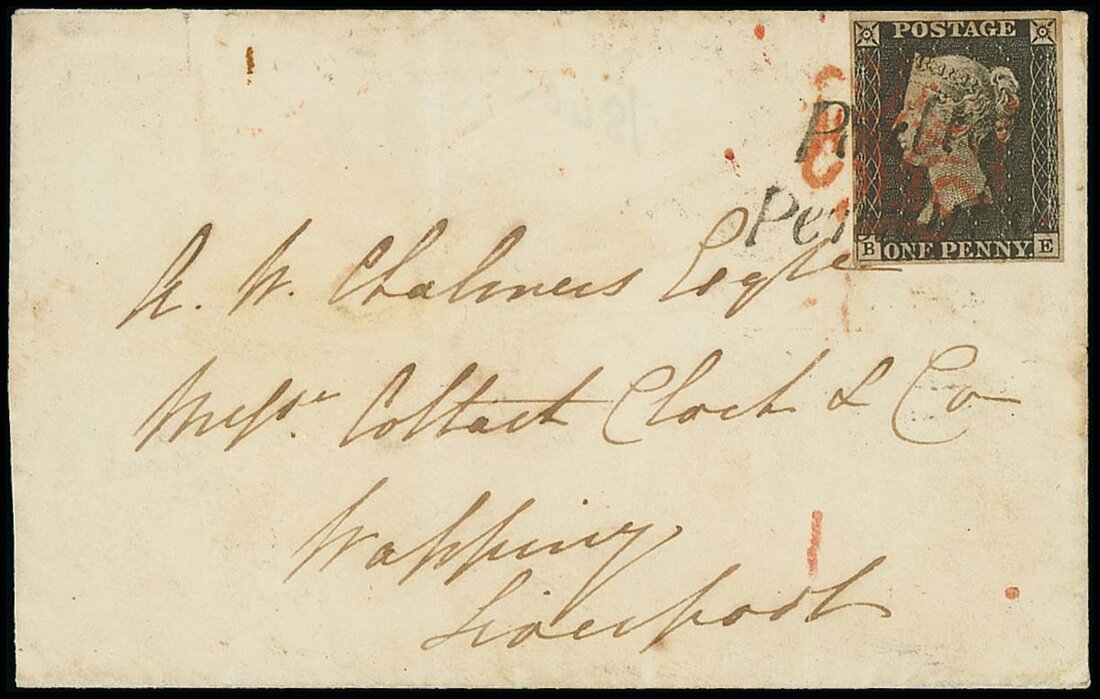 POSTAGE
Pe
B ONE PENNY. E
A. W. Chalmers Esqre
Messrs. Coltart Clark & Co
Wapping
Liverpool